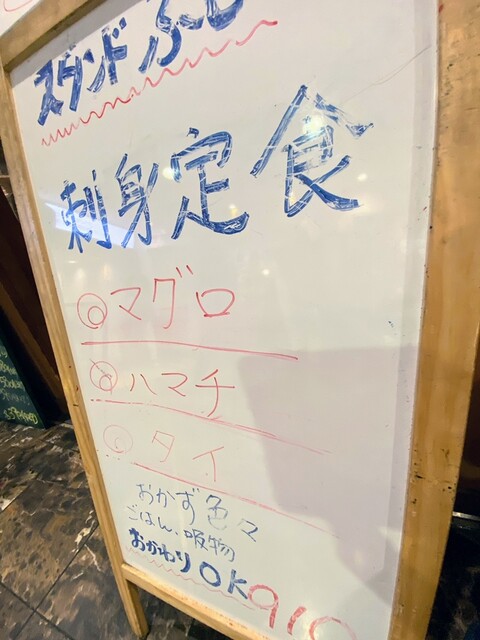 スタンド
刺身定食
◎マグロ
◎ハマチ
◎タイ
おかず色々
ごはん、吸物
おかわりOK 910